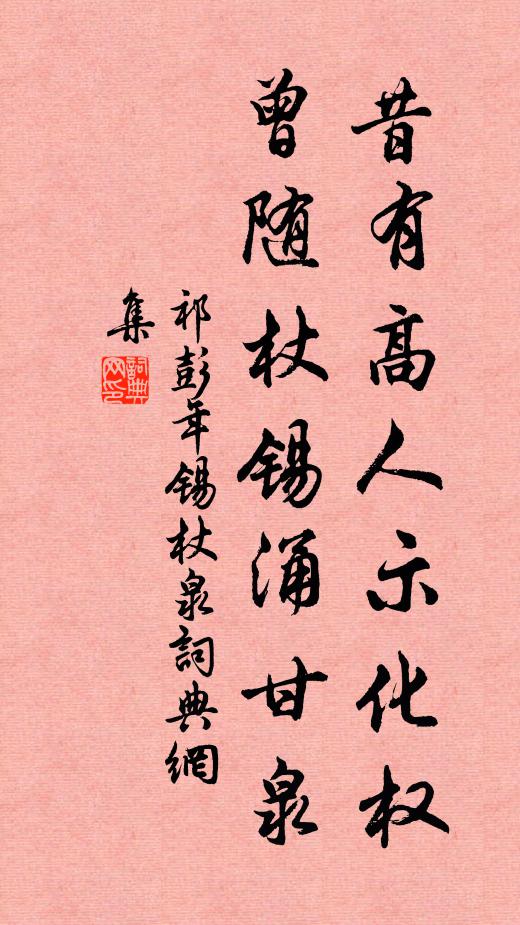 昔有高人示化权
曾随杖锡涌甘泉
祁彭年锡杖泉詞典網
集
詞典
网印